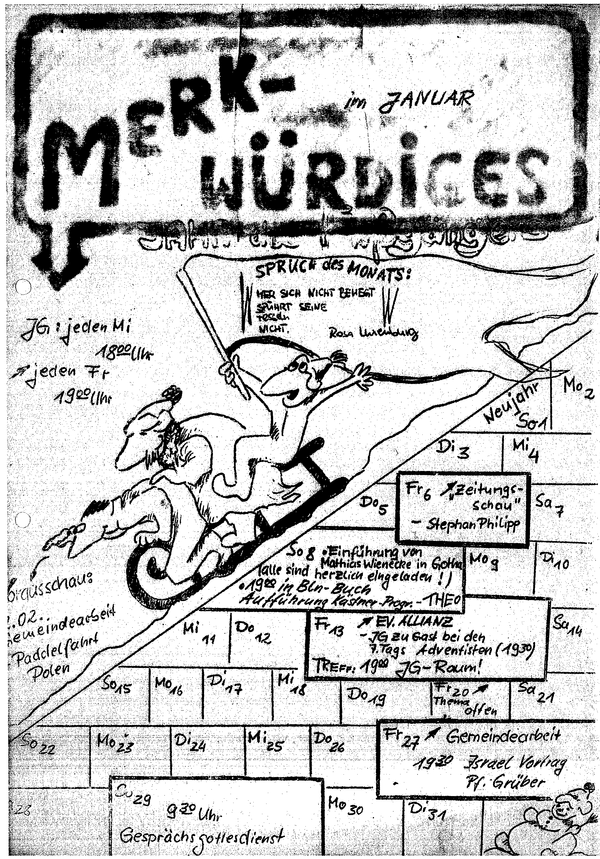 MERK-
im JANUAR
WÜRDIGES
SPRUCH des MONATS:
WER SICH NICHT BEWEGT
SPÜRT SEINE
FESSELN
NICHT.
Rosa Luxemburg
JG: jeden Mi
18⁰⁰ Uhr
jeden Fr
19⁰⁰ Uhr
Neujahr
So 1
Mo 2
Di 3
Mi 4
Do 5
Fr 6 "Zeitungs-
schau"
- Stephan Philipp
Sa 7
So 8 • Einführung von
Mathias Wienecke in Gotha
(alle sind herzlich eingeladen!)
• 19⁰⁰ in Bln-Buch
Aufführung Kästner-Progr. - THEO
Mo 9
Di 10
Mi 11
Do 12
Fr 13 EV. ALLIANZ
- JG zu Gast bei den
7.Tags Adventisten (19³⁰)
TREFF: 19⁰⁰ JG-Raum!
Sa 14
So 15
Mo 16
Di 17
Mi 18
Do 19
Fr 20
Thema
offen
Sa 21
So 22
Mo 23
Di 24
Mi 25
Do 26
Fr 27 Gemeindearbeit
19³⁰ Israel Vortrag
Pf. Grüber
28
So 29
9³⁰ Uhr
Gesprächsgottesdienst
Mo 30
Di 31
orausschau:
.02.
Gemeindearbeit
Paddelfahrt
Polen